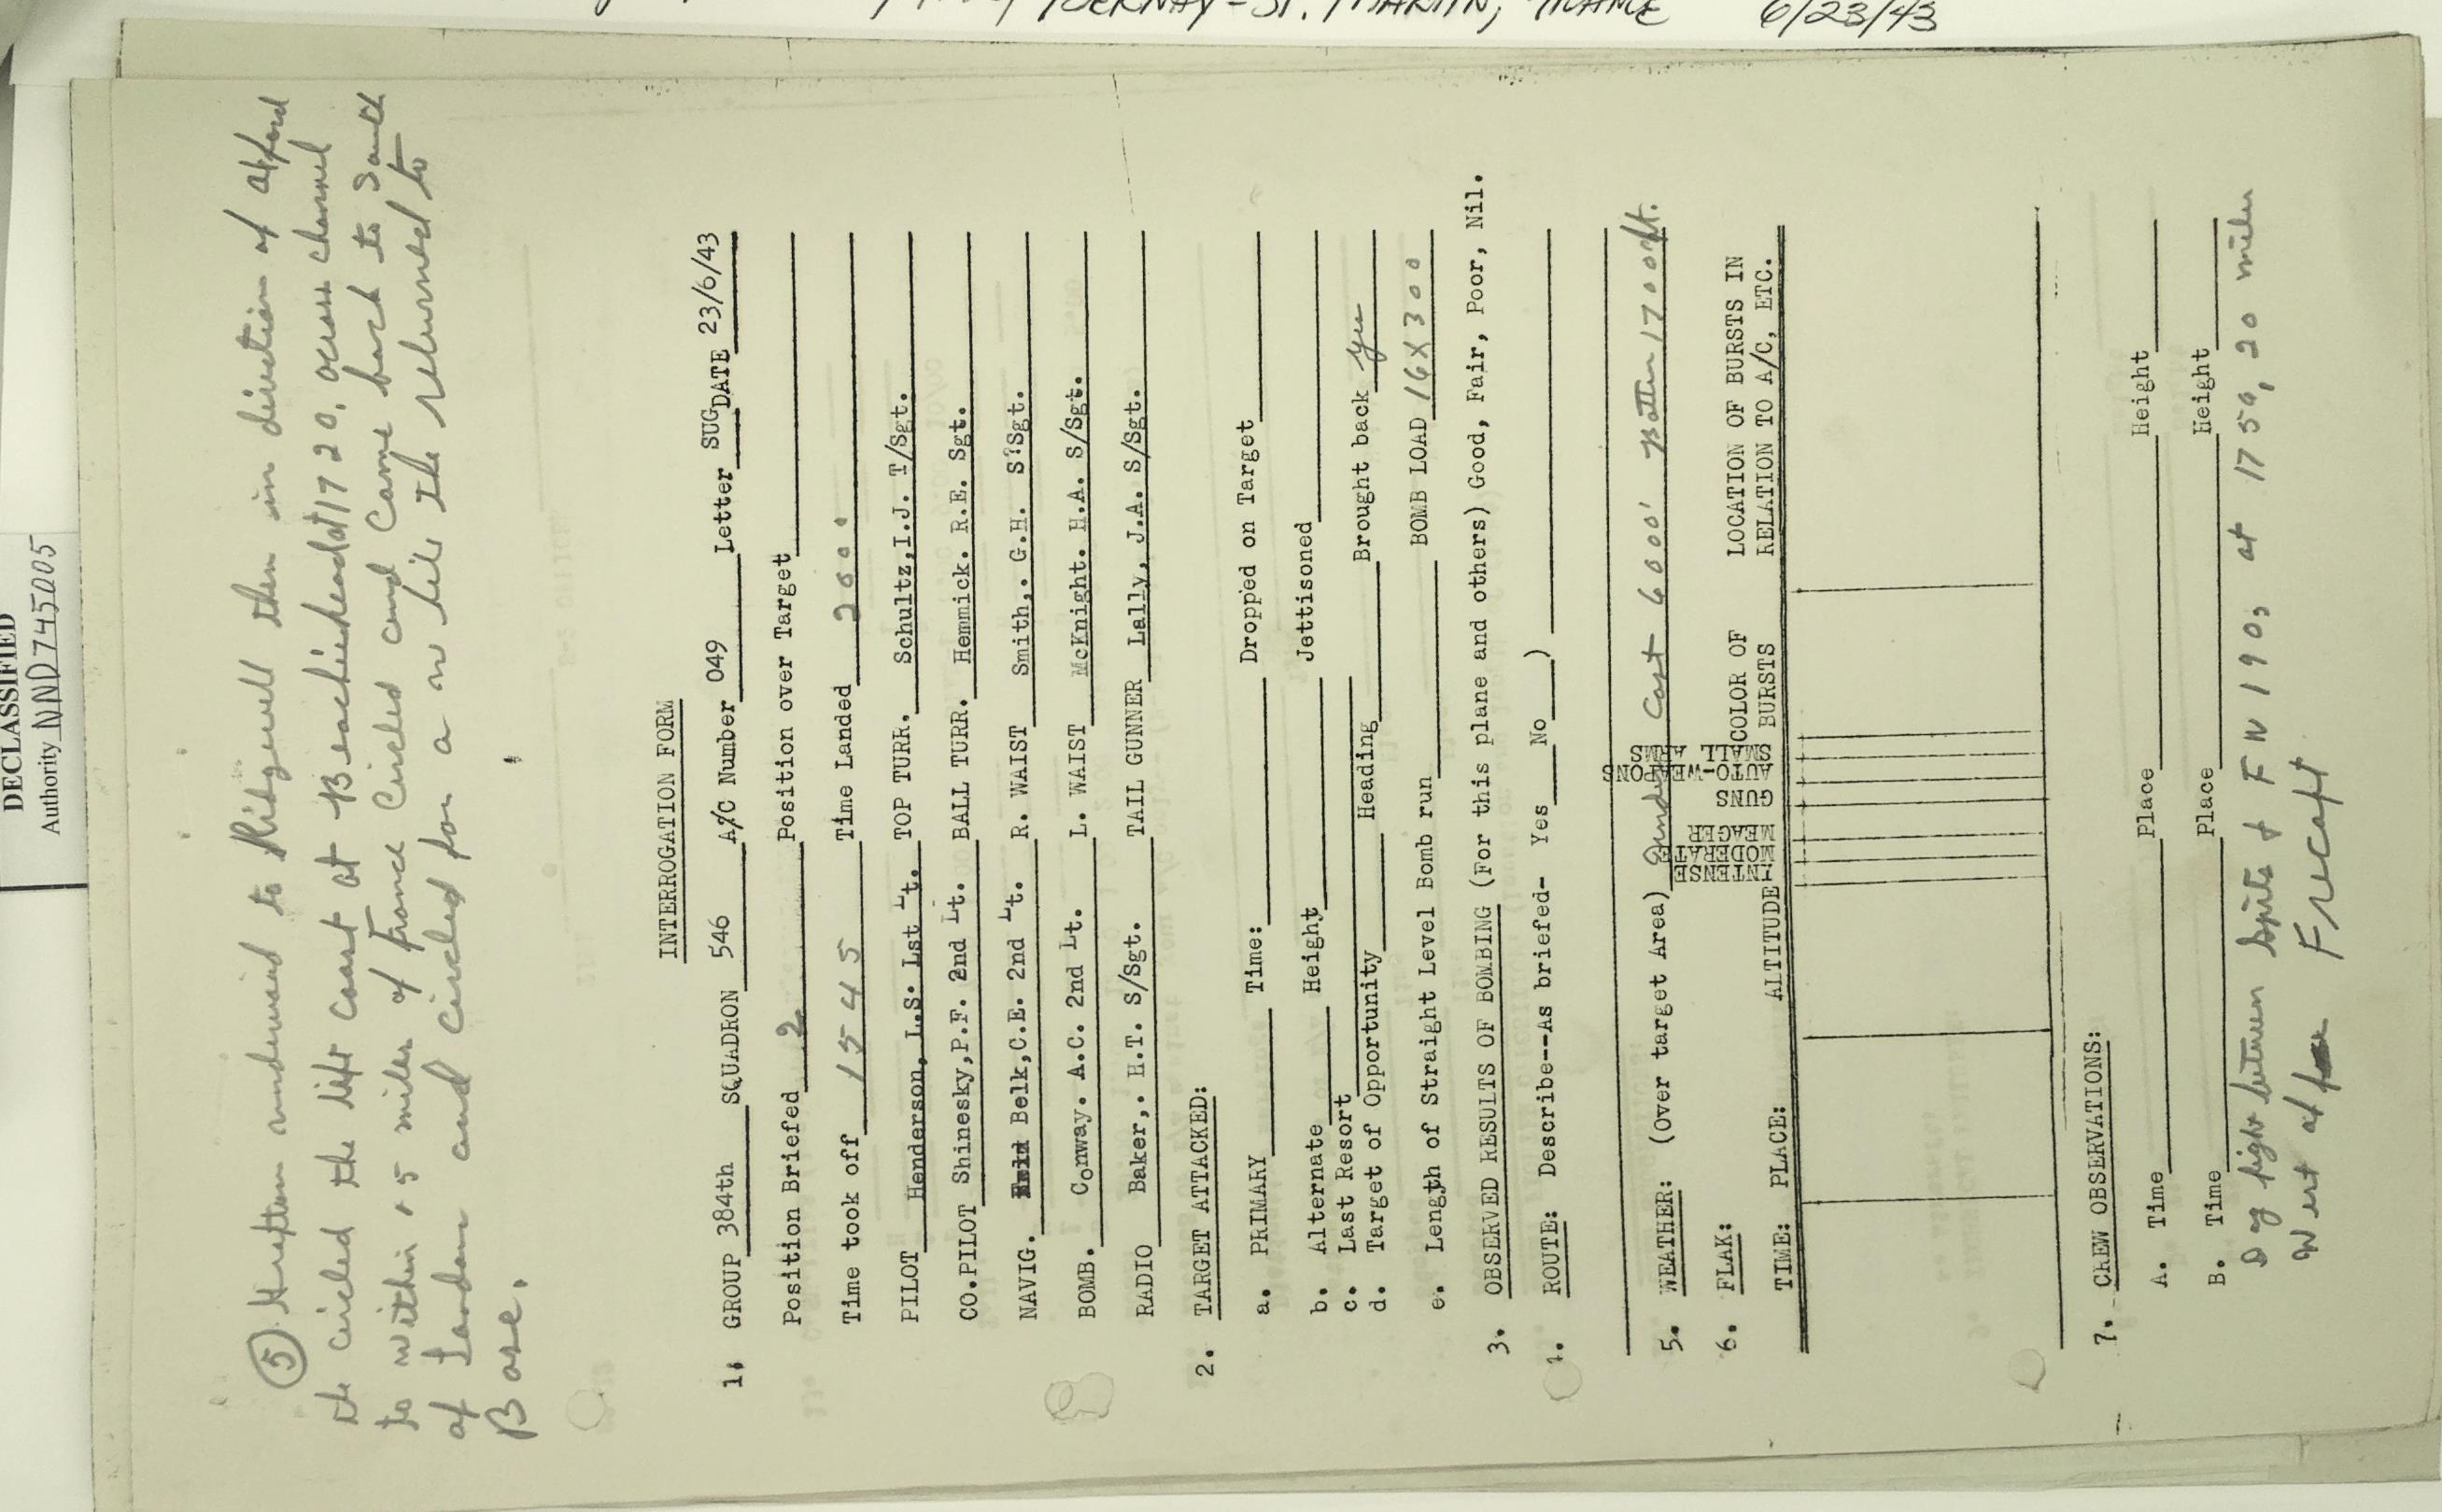 BERNAY-ST. MARTIN, FRANCE 6/23/43
DECLASSIFIED
Authority NND745005
(5) to Ridgewell then in direction of
the circled the left coast at Beachiehead at 1720. across channel
to within 15 miles of France Circled and Came back to South
of London and circled for a then returned to
Base.
INTERROGATION FORM
1. GROUP 384th SQUADRON 546 A/C Number 049 Letter SUG DATE 23/6/43
Position Briefed 2 Position over Target
Time took off 1545 Time Landed 2000.
PILOT Henderson, L.S. Lst Lt. TOP TURR. Schultz,I.J. T/Sgt.
CO.PILOT Shinesky,P.F. 2nd Lt. BALL TURR. Hemmick. R.E. Sgt.
NAVIG. Belk,C.E. 2nd Lt. R. WAIST Smith,. G.H. S?Sgt.
BOMB. Conway. A.C. 2nd Lt. L. WAIST McKnight. H.A. S/Sgt.
RADIO Baker,. H.T. S/Sgt. TAIL GUNNER Lally, J.A. S/Sgt.
2. TARGET ATTACKED:
a. PRIMARY Time: Dropped on Target
b. Alternate Height Jettisoned
c. Last Resort
d. Target of Opportunity Heading Brought back yes
e. Length of Straight Level Bomb run BOMB LOAD 16X300
3. OBSERVED RESULTS OF BOMBING (For this plane and others) Good, Fair, Poor, Nil.
4. ROUTE: Describe--As briefed- Yes No )
5. WEATHER: (over target Area) Cast 6000' 1700 ft.
6. FLAK:
TIME: PLACE: ALTITUDE INTENSE MODERATE MEAGER GUNS AUTO-WEAPONS SMALL ARMS COLOR OF BURSTS LOCATION OF BURSTS IN RELATION TO A/C, ETC.
7. CREW OBSERVATIONS:
A. Time Place Height
B. Time Place Height
Dog fight between Spits & FW 190s at 1750, 20 miles
West of Frecaft